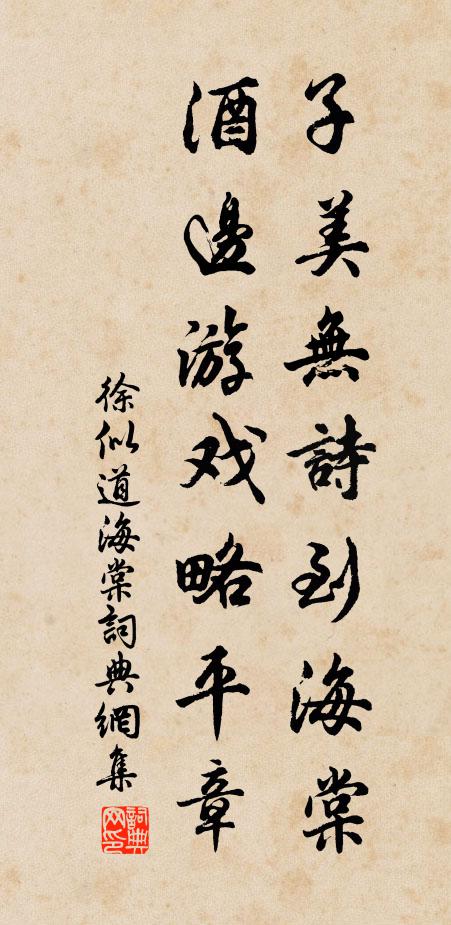 子美無詩到海棠
酒邊游戏略平章
徐似道海棠詞典網集
詞典网印